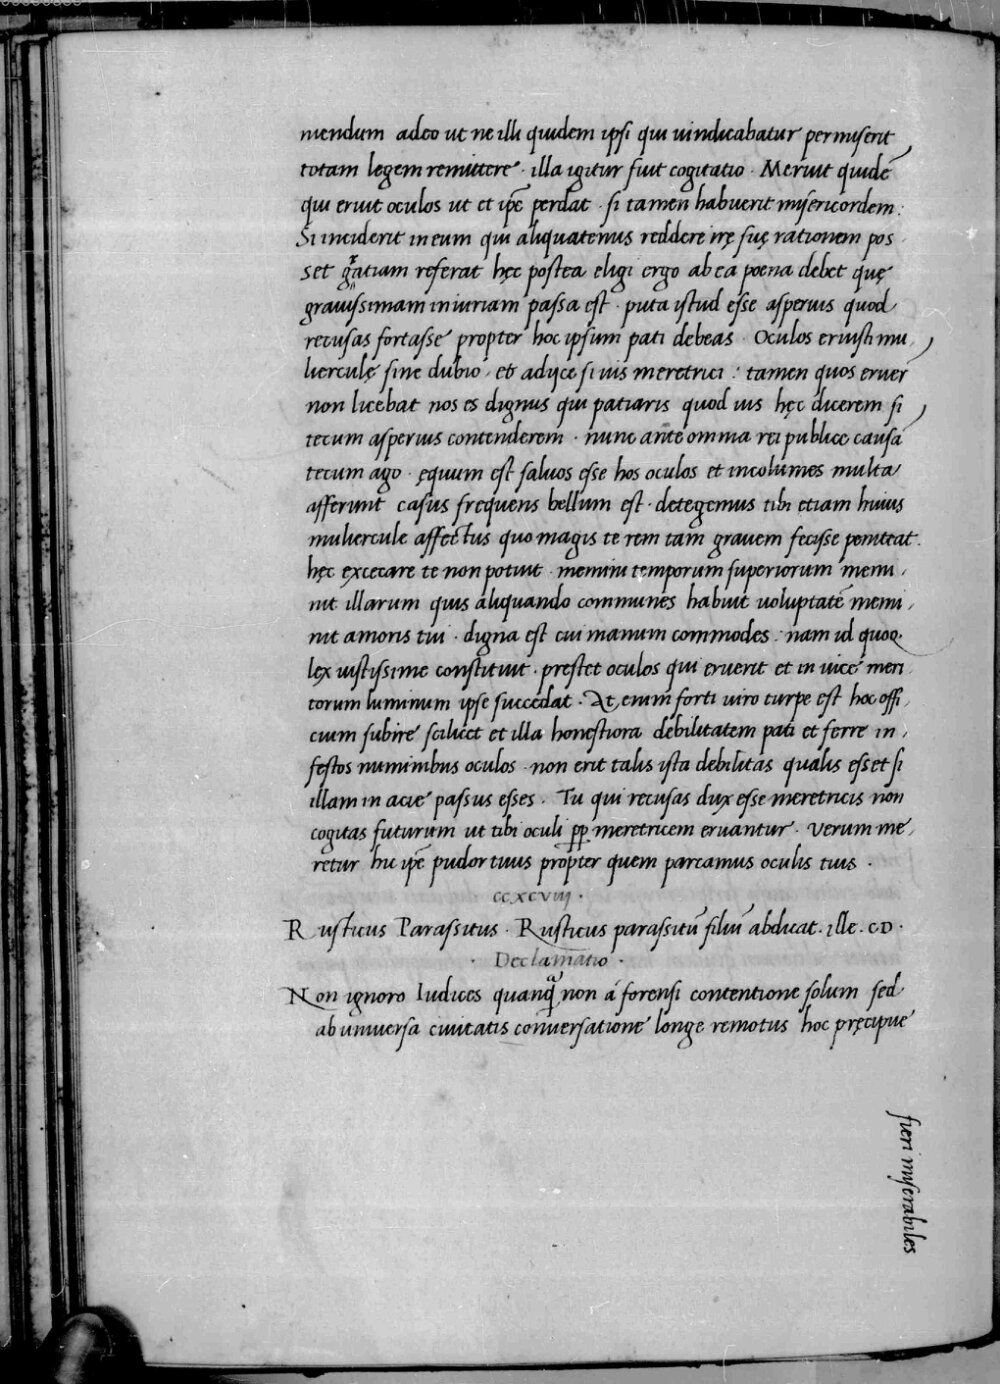 niendum adeo ut ne illi quidem ipsi qui uindicabatur permiserit
totam legem remittere · illa igitur fuit cogitatio · Meruit quidē
qui eruit oculos ut et ip̄e perdat · si tamen habuerit misericordem :
Si inciderit in eum qui aliquatenus reddere irę suę rationem pos
set gratiam referat hęc postea eligi ergo ab ea poena debet quę
grauissimam iniuriam passa est · puta istud esse asperius quod
recusas fortasse propter hoc ipsum pati debeas · Oculos eruisti mu
lierculę sine dubio , et adijce si uis meretrici : tamen quos eruer
non licebat nos es dignus qui patiaris quod uis hęc dicerem si
tecum asperius contenderem · nunc ante omnia rei publicę causa
tecum ago · ęquum est saluos esse hos oculos et incolumes multa
afferunt casus frequens bellum est · detegemus tibi etiam huius
muliercule affectus quo magis te rem tam grauem fecisse peniteat .
hęc excecare te non potuit · memini temporum superiorum memi ,
nit illarum quis aliquando communes habuit uoluptatē memi ,
nit amoris tui · digna est cui manum commodes : nam id quoq·
lex iustissime constituit · prestet oculos qui eruerit et in uicē meri
torum luminum ipse succedat · At enim forti uiro turpe est hoc offi ,
cium subire scilicet et illa honestiora debilitatem pati et ferre in ,
festos numinibus oculos · non erit talis ista debilitas qualis esset si
illam in acie passus esses · Tu qui recusas dux esse meretricis non
cogitas futurum ut tibi oculi pp meretricem eruantur · uerum me ,
retur hic ip̄e pudor tuus propter quem parcamus oculis tuis ·
ccxcviij ·
Rusticus Parassitus · Rusticus parassitū filiū abdicat . ille . CD ·
· Declamatio ·
Non ignoro Iudices quanq̄ non á forensi contentione solum sed
ab uniuersa ciuitatis conuersatione longe remotus hoc pręcipue
fieri miserabiles